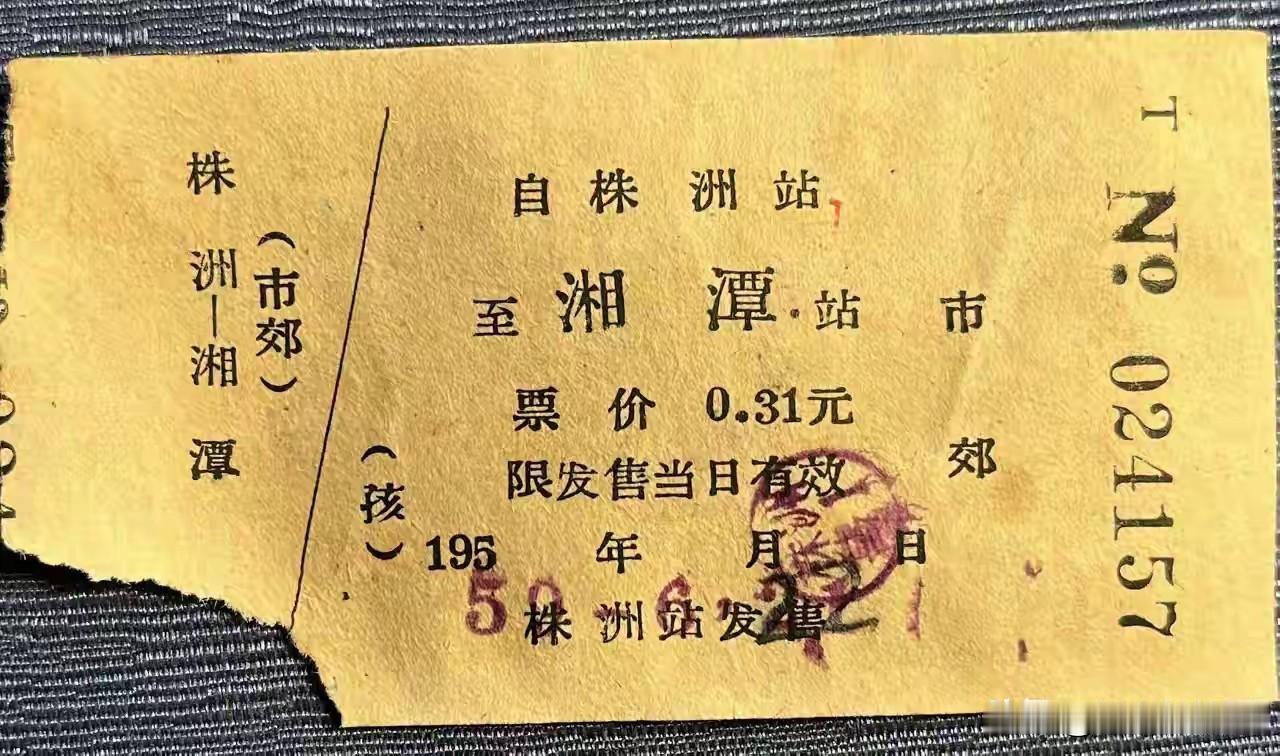 株洲—湘潭
(市郊)
自株洲站
至湘潭站
市郊
票价 0.31元
限发售当日有效
(孩)
195 年 月 日
株洲站发售
T No 024157